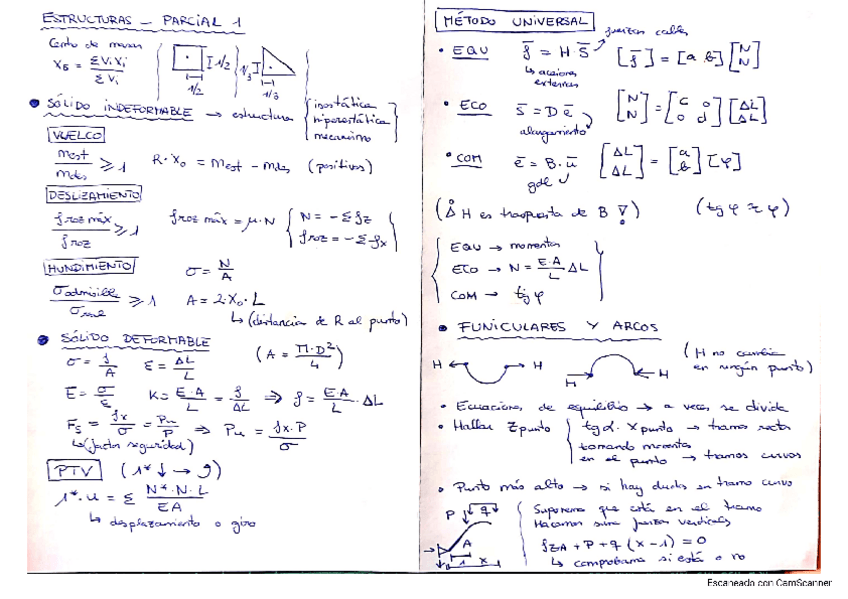 ESTRUCTURAS - PARCIAL 1
Centro de masas
X_G = ΣVᵢXᵢ / ΣVᵢ
1/2
1/2
1/3
1/3
SÓLIDO INDEFORMABLE → estructura { isostática
hiperestática
mecanismo }
VUELCO
Mest / Mdes ≥ 1 R·X₀ = Mest - Mdes (positivos)
DESLIZAMIENTO
froz máx / froz ≥ 1 froz máx = μ·N { N = -Σfz
froz = -Σfx }
HUNDIMIENTO σ = N/A
σadmisible ≥ 1 A = 2·X₀·L
↳ (distancia de R al punto)
SÓLIDO DEFORMABLE
σ = f/A ε = ΔL/L (A = Π·D²/4)
E = σ/ε K = E·A/L = f/ΔL ⇒ f = EA/L · ΔL
Fs = fx/σ = Pu/P ⇒ Pu = fx·P/σ
↳ (factor seguridad)
PTV (1* ↓ → )
1*·u = Σ N*·N·L / EA
↳ desplazamiento o giro
MÉTODO UNIVERSAL
fuerzas cables
• EQU f = H S [f] = [a b] [N N]
↳ acciones
externas
• ECO S = D e [N N] = [c o o d] [ΔL ΔL]
alargamiento
• COM e = B·u [ΔL ΔL] = [a b] [φ]
gdl
(H es traspuesta de B !) (tg φ ≈ φ)
EQU → momentos
ECO → N = E·A/L ΔL
COM → tg φ
FUNICULARES Y ARCOS
H H H H (H no cambia
en ningún punto)
• Ecuaciones de equilibrio → a veces se divide
• Hallar Zpunto { tg α · Xpunto → tramo recto
tomando momentos
en el punto → tramos curvos
• Punto más alto → si hay dudas en tramo curvo
P q Suponemos que está en el tramo
Hacemos suma fuerzas verticales
A fzA + P + q (x - 1) = 0
1 x ↳ comprobamos si está o no
Escaneado con CamScanner